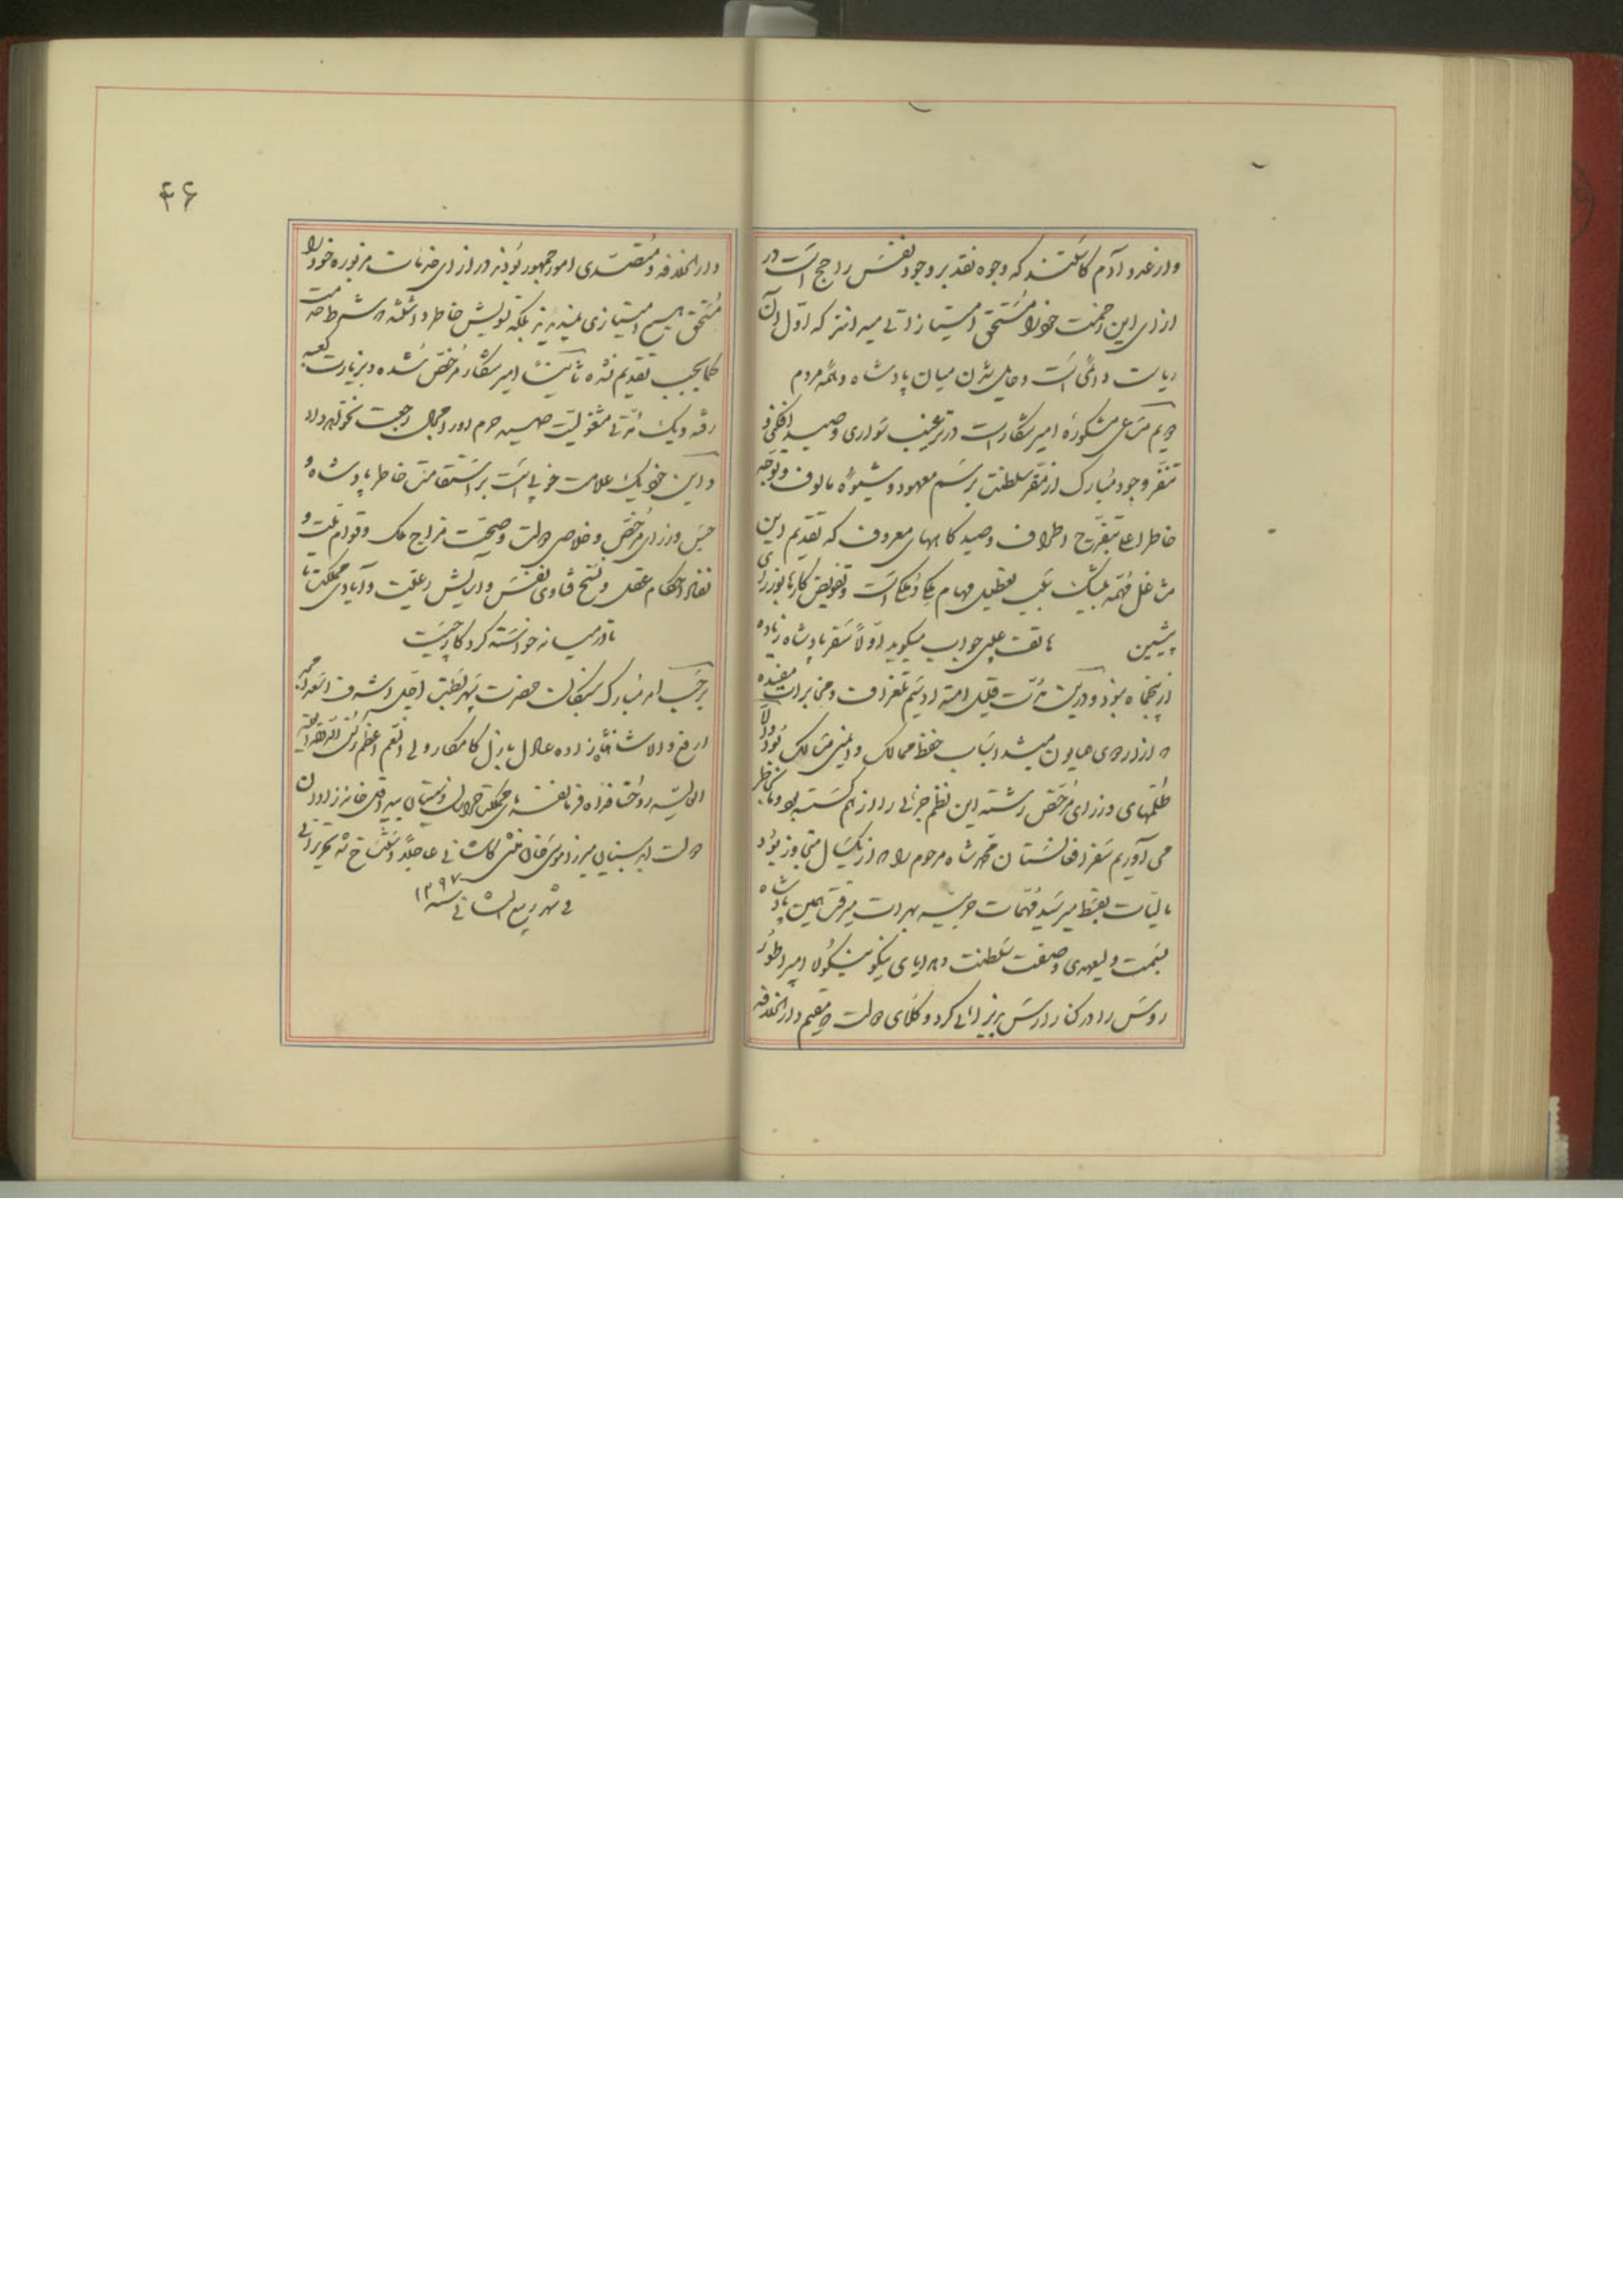 و از غدد آدم کاستند که وجوه نقد بر وجود نفس راجح است در
ازای این زحمت خود را مستحق امتیازاتی میدانند که اول آن
ریاست دائمی است و حایل شدن میان پادشاه و همه مردم
مساعی مشکوره امیر شکار است در ترغیب سواری و صید افکنی و
سفر وجود مبارک از مقر سلطنت برسم معهود و شیوه مالوف و توجه
خاطر اعلی بتفرج اطراف و صیدگاههای معروف که تقدیم این
مشاغل مهمه بیشک سبب تعطیل مهام ملک و ملک است و تفویض کارها بوزرای
پیشین هاتف غیبی جواب میگوید اولا سفر پادشاه زیاده
از پنجماه نبود و در این مدت قلیل تلغرافت و مخابرات مفیده
که از اردوی همایون میشد اسباب حفظ ممالک و ایمنی مسالک بود والا
ظلمهای وزرای مرخص رشته این نظم جزئی را از هم گسسته بود ما بخاطر
می آوریم سفر افغانستان محمد شاه مرحوم را که از یکسال متجاوز بود
مالیات بقسط میرسید مهمات حربیه بهرات میرفت همین پادشاه
بسمت ولیعهدی و صفت سلطنت و هدایای نیکو نیکولا امپراطور
روس را در کنار ارس پذیرائی کرد و وکلای دولت مقیم دار الخلافه
۴۶
دار الخلافه و متصدی امور جمهور بودند در ازای خدمات مزبوره خود را
مستحق هیچ امتیازی ندیدند بلکه تشویش خاطر داشتند که شرط خدمت
کما یجب تقدیم نشده ثالثا امیر شکار مرخص شده و بزیارت کعبه
رفته و یک مدتی مشغولیت صید حرم او را مجال رجعت نخواهد داد
و این خود یک علامت خوبی است بر استقامت خاطر پادشاه و
حبس وزرای مرخص و خلاصی دولت و صحت مزاج ملک و قوام ملت و
نفاذ احکام عقل و نسخ فتاوی نفس و آسایش رعیت و آبادی مملکت تا
تا در میانه خواسته کردگار چیست
بر حسب امر مبارک بندگان حضرت اقدس اشرف اسعد امجد
ارفع والا شاهنشاه زاده عادل باذل کامکار ولی النعم اعظم
روحنا فداه فرمانفرمای مملکت بقلم خانه زاد
دولت میرزا موسی خان منشی کاشانی عاجلا استنساخ شد تحریرا فی
فی شهر ربیع الثانی سنه ۱۲۹۷